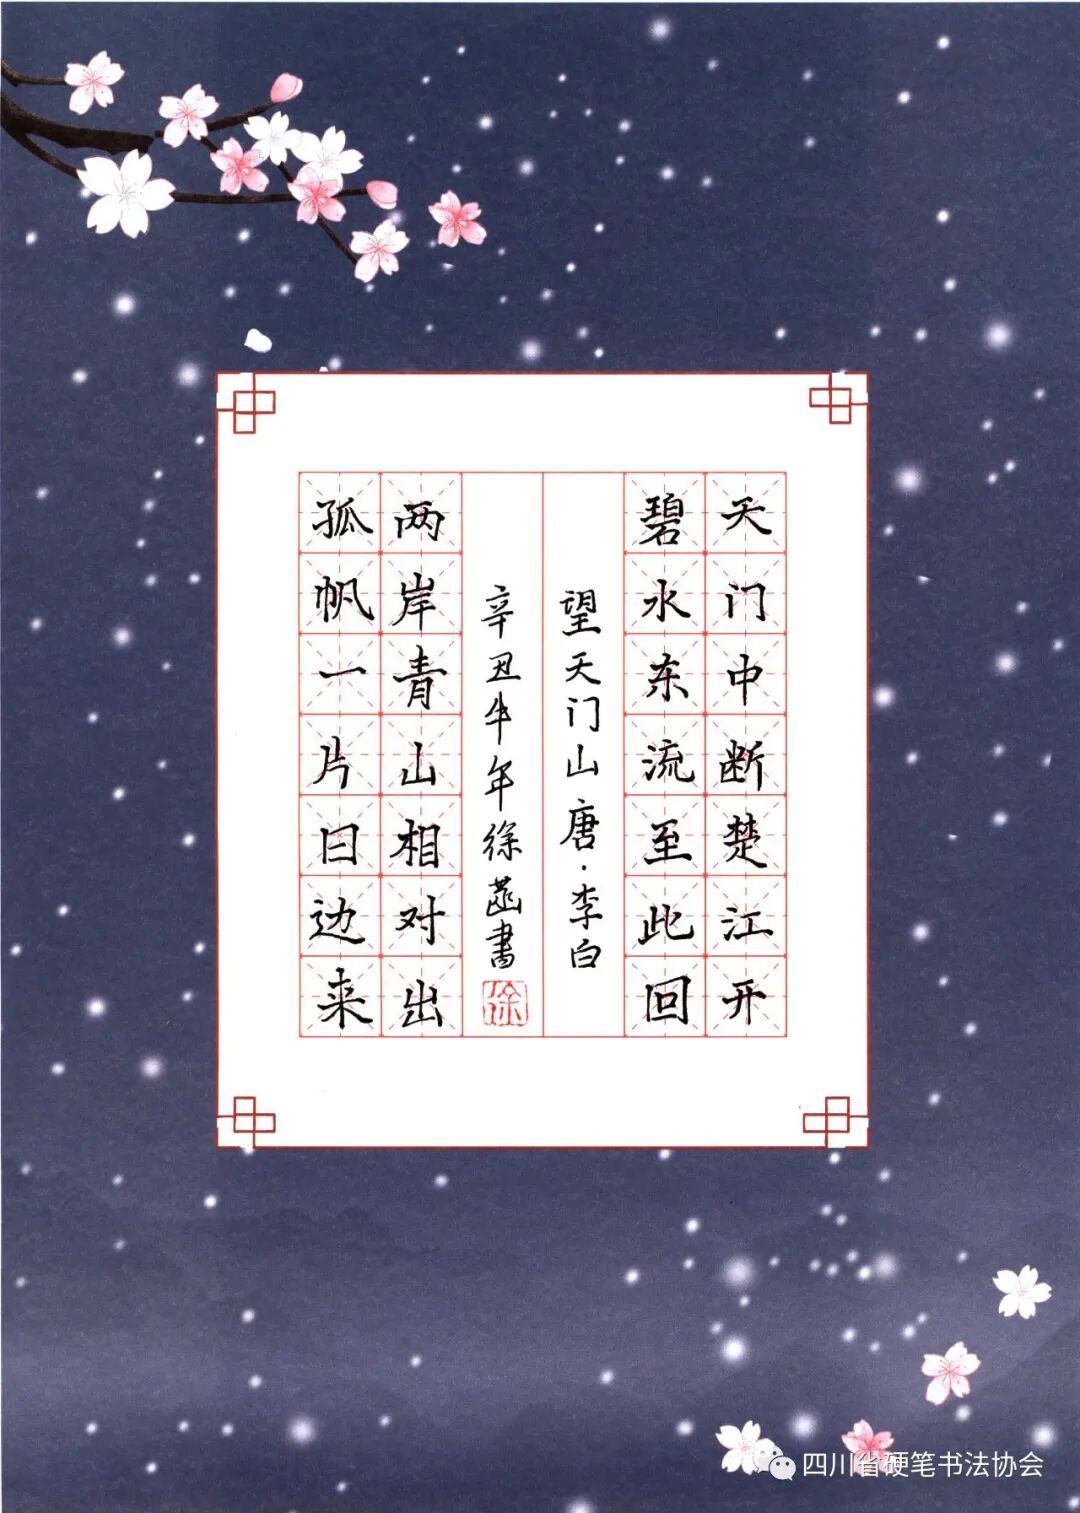 天门中断楚江开
碧水东流至此回
望天门山 唐·李白
辛丑牛年徐菡書
徐
两岸青山相对出
孤帆一片日边来
四川省硬笔书法协会